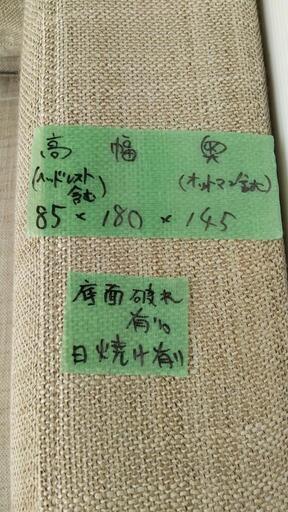 高 幅 奥
(ヘッドレスト含む) (オットマン含む)
85 × 180 × 145
底面破れ
有り。
日焼け有り